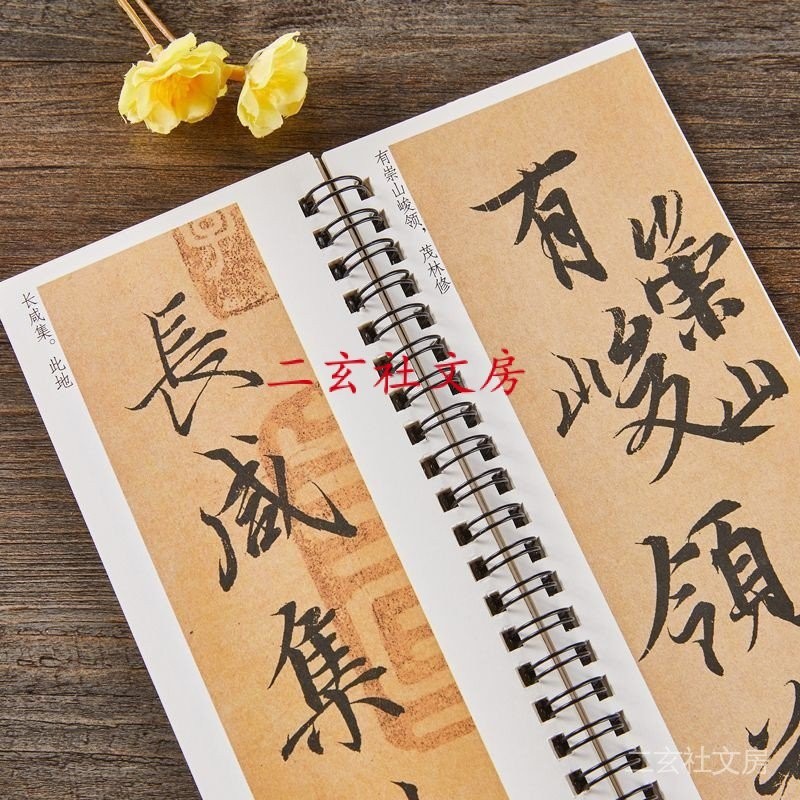 长咸集。此地
長咸集
二玄社文房
有崇山峻领，茂林修
有崇山
峻領
二玄社文房